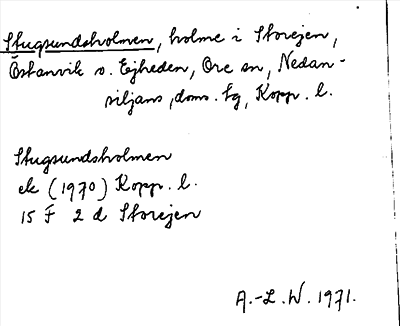 Stugsundsholmen, holme i Storejen,
Östanvik o. Ejheden, Ore sn, Nedan-
siljans, doms. tg, Kopp. l.
Stugsundsholmen
ek (1970) Kopp. l.
15 F 2 d Storejen
A.-L. W. 1971.